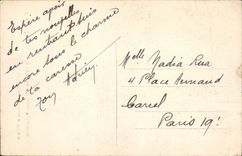 Espère avoir
de tes nouvelles
en rentrant suis
encore sous le charme
de ta caresse
Ton
Melle Nadia
4 Place
Paris 19e